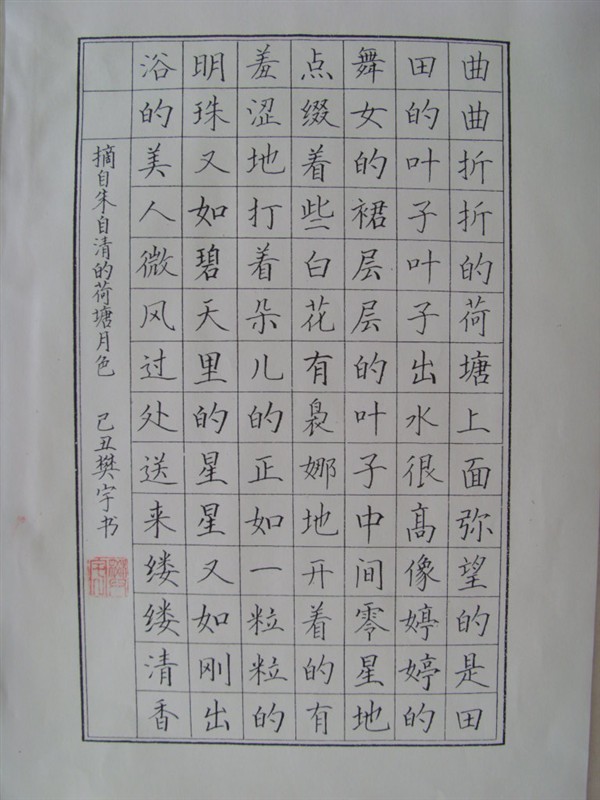 曲曲折折的荷塘上面弥望的是田
田的叶子叶子出水很高像婷婷的
舞女的裙层层的叶子中间零星地
点缀着些白花有袅娜地开着的有
羞涩地打着朵儿的正如一粒粒的
明珠又如碧天里的星星又如刚出
浴的美人微风过处送来缕缕清香
摘自朱自清的荷塘月色 己丑樊宇书